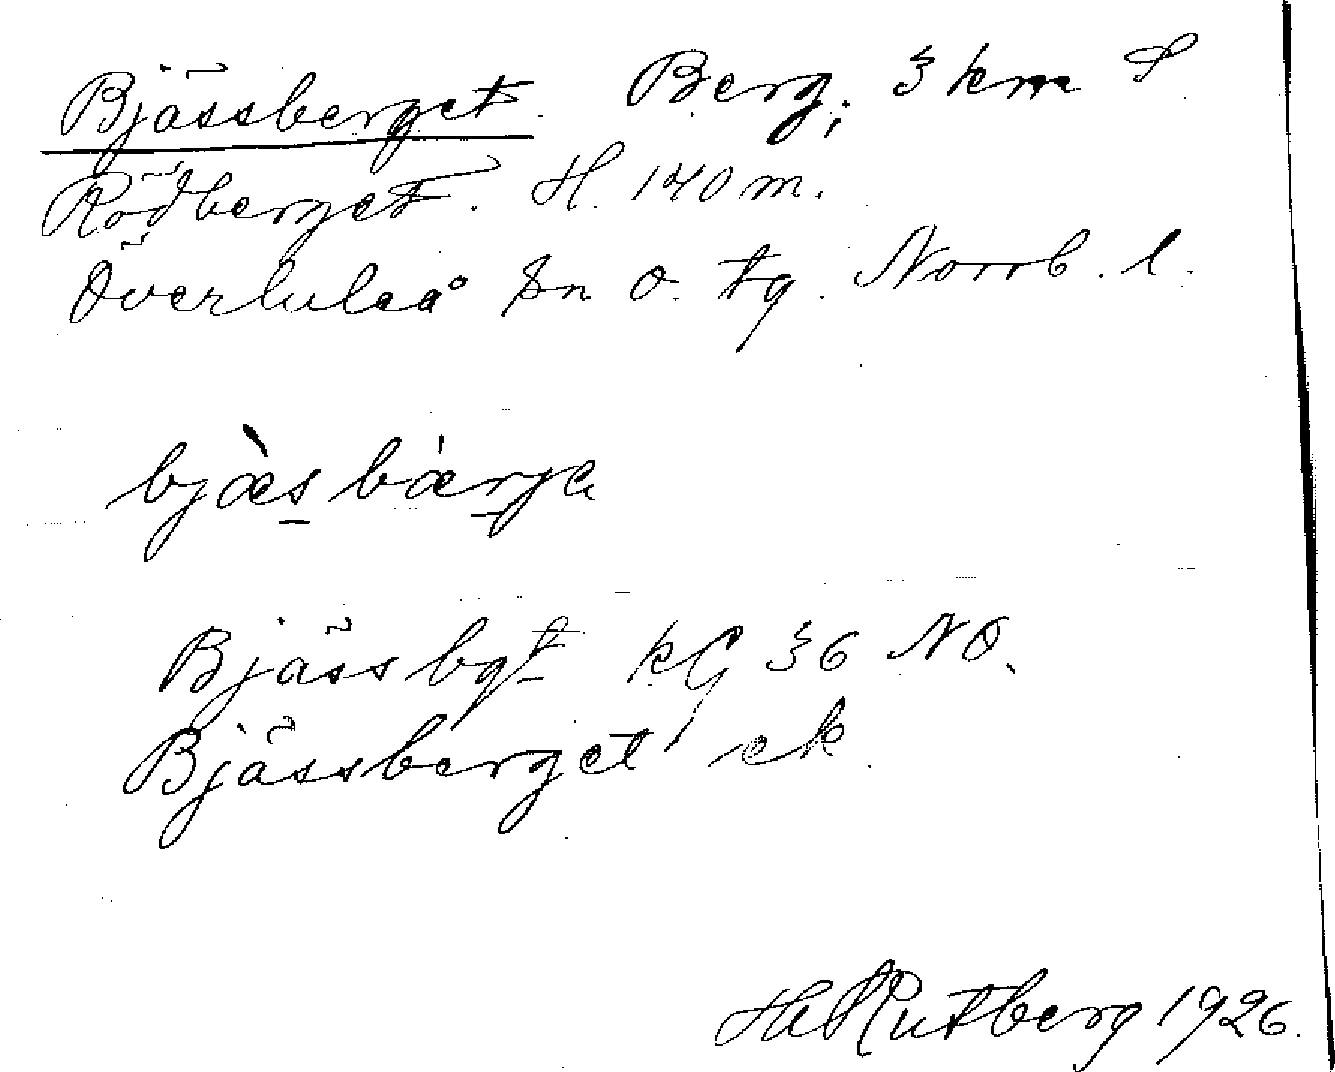 Bjässberget. Berg, 3 km S
Rödberget. H. 140 m.
Överluleå sn o. tg. Norrb. l.
bjæ̀s bǽrje
Bjässbgt kG 36 NO.
Bjässberget ek.
H Rutberg 1926.